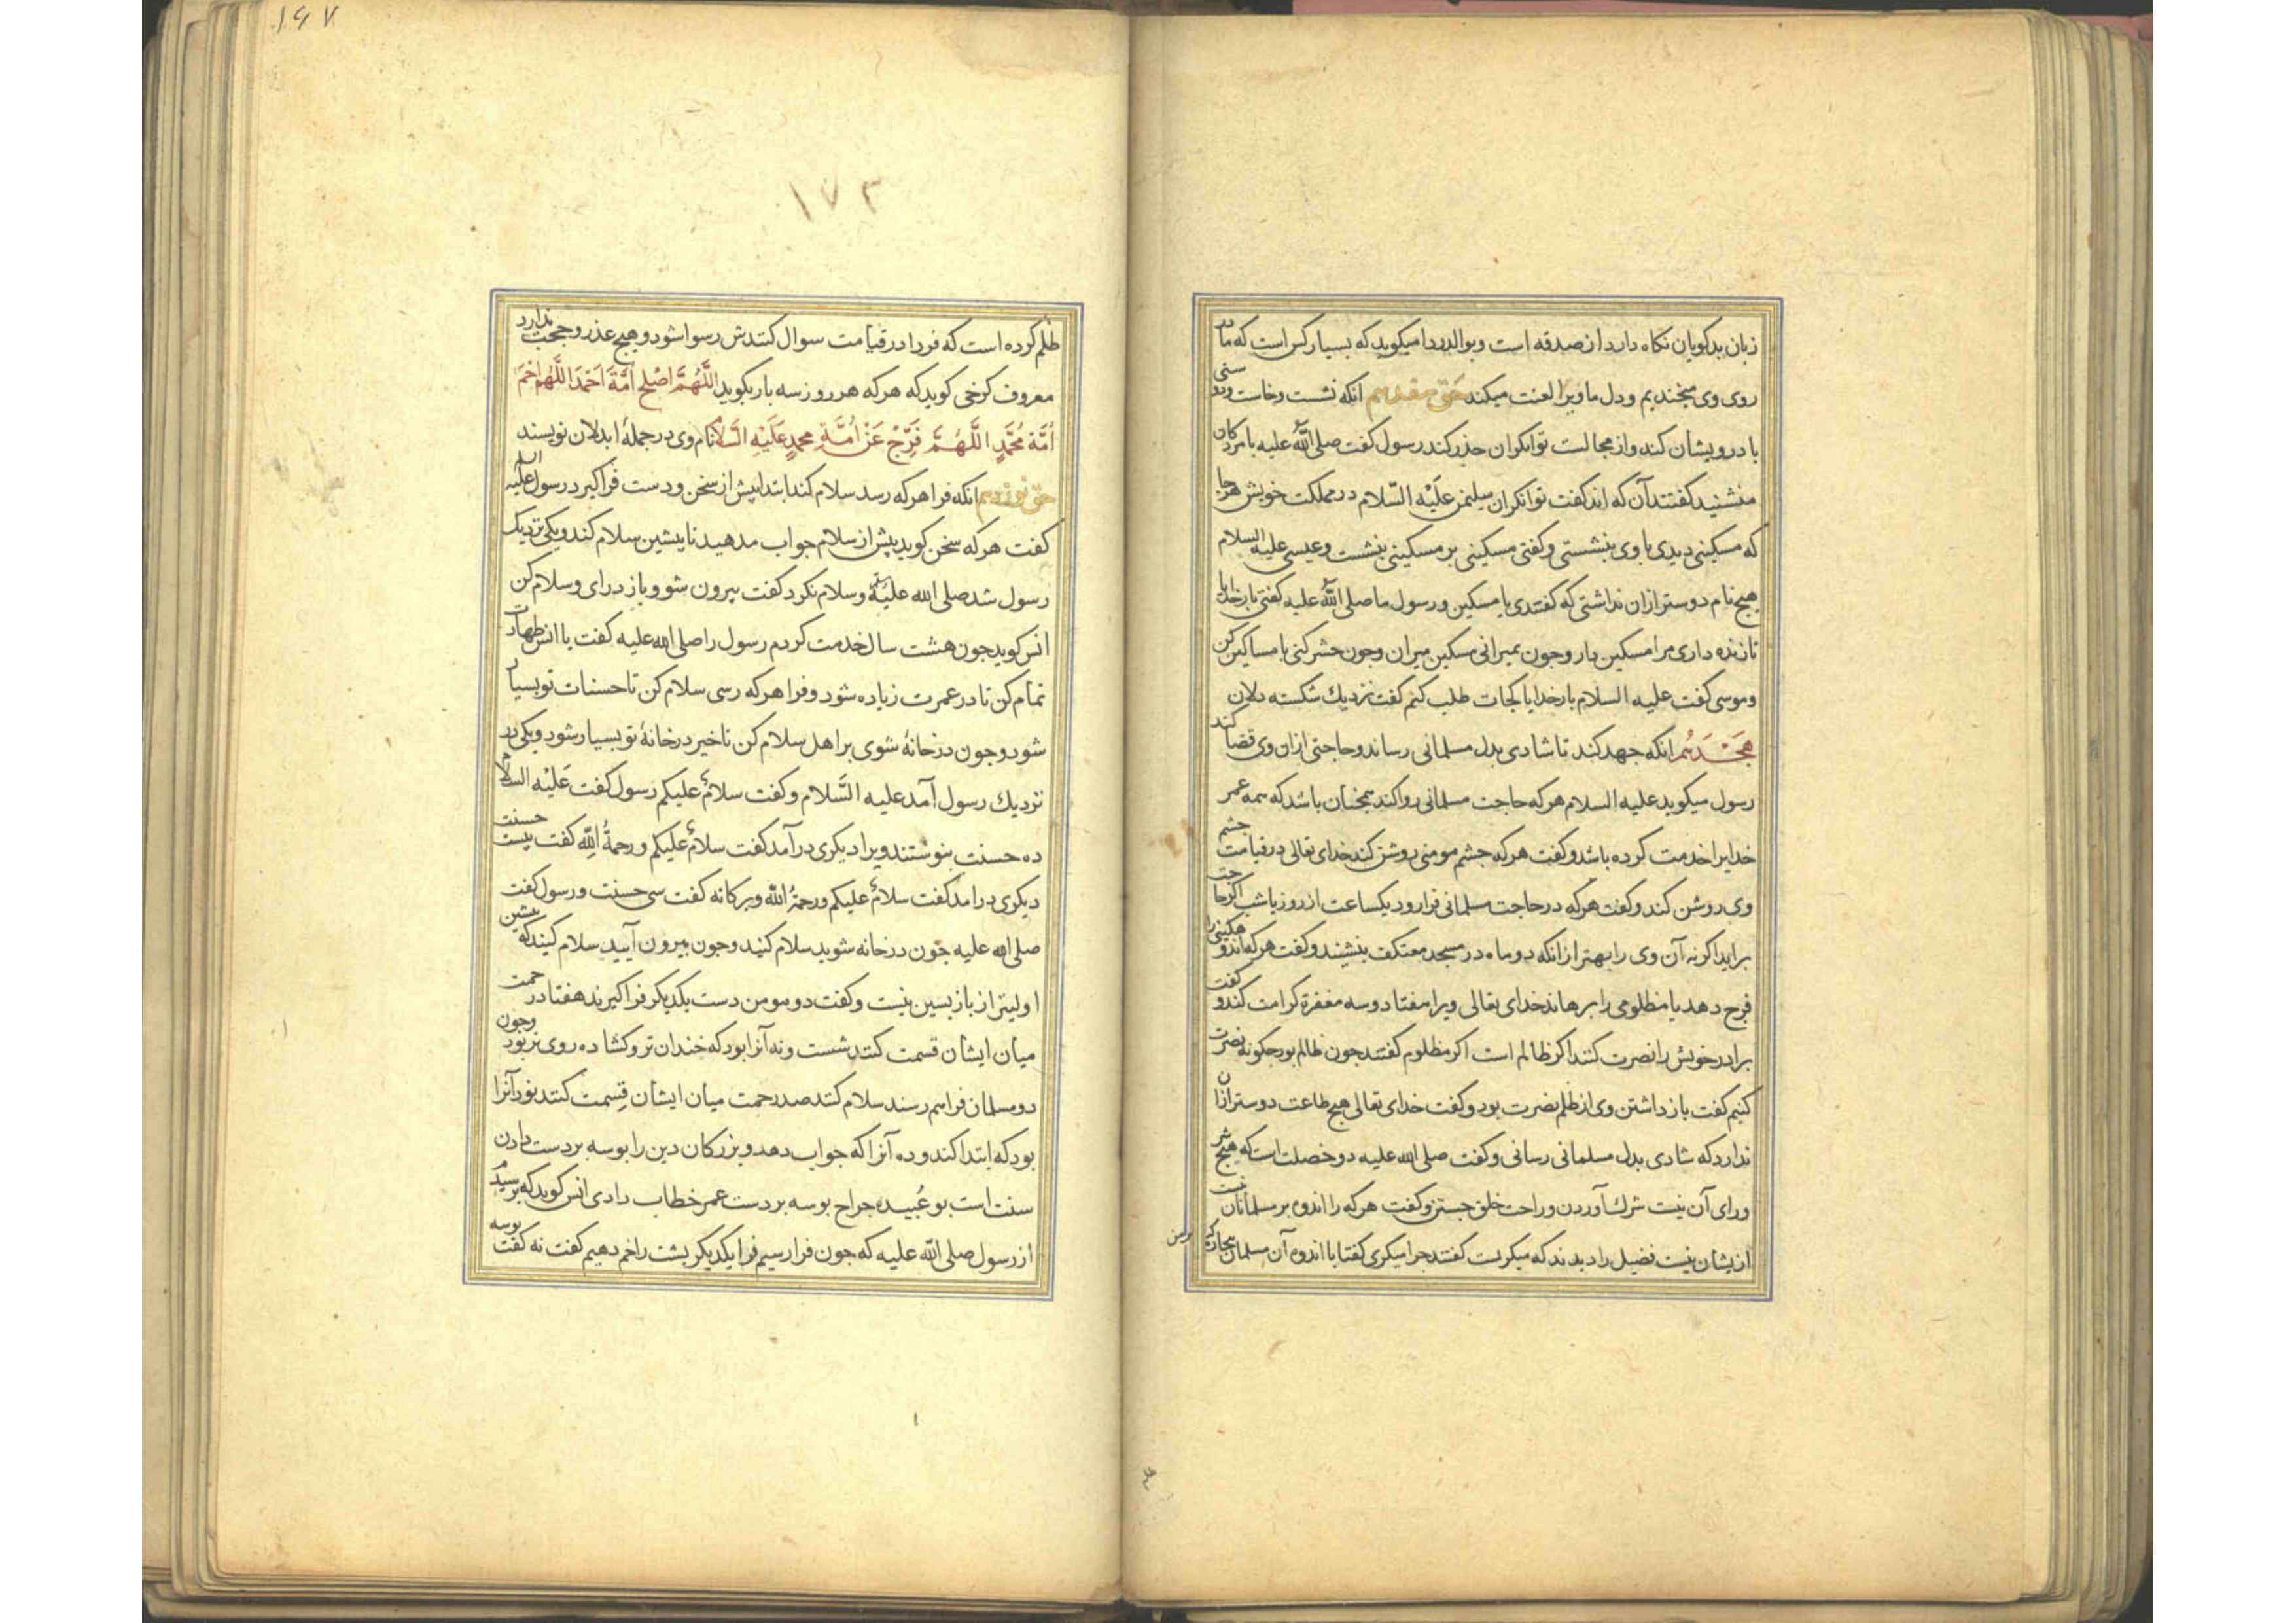 زبان بدکویان نکاه دارد از صدقه است و بوالدردا میکوید که بسیار کس است که ما در
روی وی میخندیم و دل ما ویرا لعنت میکند حق هفدهم انکه نشست و خاست و دوستی
با درویشان کند و از مجالست توانکران حذر کند رسول کفت صلی الله علیه با مردکان
منشنید کفتند آن که اند کفت توانکران سلیمن علیه السلام در مملکت خویش هر جا
که مسکینی دیدی با وی بنشستی و کفتی مسکینی بر مسکینی بنشست و عیسی علیه السلام
هیچ نام دوستر ازان نداشتی که کفتندی یا مسکین و رسول ما صلی الله علیه کفتی بار خدایا
تا زنده داری مرا مسکین دار و جون بمیرانی مسکین میران و جون حشر کنی با مساکین کن
و موسی کفت علیه السلام بار خدایا کجات طلب کنم کفت نزدیك شکسته دلان
هجدهم انکه جهد کند تا شادی بدل مسلمانی رساند و حاجتی ازان وی قضا کند
رسول میکوید علیه السلام هر که حاجت مسلمانی روا کند همجنان باشد که همه عمر
خدایرا خدمت کرده باشد و کفت هر که جشم مومنی روشن کند خدای تعالی در قیامت جشم
وی روشن کند و کفت هر که در حاجت مسلمانی فرا رود یکساعت از روز یا شب اکر حاجت
براید اکر نه آن وی را بهتر از انکه دو ماه در مسجد معتکف بنشیند و کفت هر که اندوهکینی را
فرج دهد یا مظلومی را برهاند خدای تعالی ویرا هفتاد و سه مغفرة کرامت کند و کفت
برادر خویش را نصرت کنند اکر ظالم است اکر مظلوم کفتند جون ظالم بود جکونه نصرت
کنیم کفت باز داشتن وی از ظلم نصرت بود و کفت خدای تعالی هیچ طاعت دوستر ازان
ندارد که شادی بدل مسلمانی رسانی و کفت صلی الله علیه دو خصلت است که هیچ شر
ورای آن نیست شرك آوردن و راحت خلق جستن و کفت هر که را اندوه بر مسلمانان نیست
از یشان نیست فضیل را دیدند که میکریست کفتند جرا میکری کفتا با اندوه آن مسلمان بیجاره که
برمن
١٦٧
١٧٣
ظلم کرده است که فردا در قیامت سوال کنندش رسوا شود و هیچ عذر و حجت ندارد
معروف کرخی کوید که هر که هر روز سه بار بکوید اللَّهُمَّ اصْلِح اُمَّةَ اَحْمَدَ اللَّهُم ارْحَمْ
اُمَّة مُحَمَّدٍ اللَّهُمَّ فَرِّجْ عَنْ اُمَّةِ محمدٍ عَلَيْهِ السَّلَامُ نام وی در جملهٔ ابدلان نویسند
حق نوزدهم انکه فرا هر که رسد سلام کند ابتدا بیش از سخن و دست فراکیرد رسول علیه السلام
کفت هر که سخن کوید پیش از سلام جواب مدهید تا پیشین سلام کند و یکی نزدیک
رسول شد صلی الله علیه وسلم و سلام نکرد کفت بیرون شو و باز درای و سلام کن
انس کوید جون هشت سال خدمت کردم رسول را صلی الله علیه کفت یا انس طهارت
تمام کن تا در عمرت زیاده شود و فرا هر که رسی سلام کن تا حسنات تو بسیار
شود و جون در خانهٔ شوی بر اهل سلام کن تا خیر در خانهٔ تو بسیار شود و یکی در
نزدیك رسول آمد علیه السَّلام و کفت سلامٌ علیکم رسول کفت عَلَیْه السلام
ده حسنت بنوشتند ویرا دیکری در آمد کفت سلامٌ علیکم و رحمةُ اللهِ کفت بیست حسنت
دیکری درامد کفت سلامٌ علیکم و رحمةُ الله و برکاته کفت سی حسنت و رسول کفت
صلی الله علیه جون در خانه شوید سلام کنید و جون بیرون آیید سلام کنید که پیشین
اولیتر از بازبسین نیست و کفت دو مومن دست یکدیکر فراکیرند هفتاد رحمت
میان ایشان قسمت کنند شست و نه آنرا بود که خندان تر و کشاده روی تر بود و جون
دو مسلمان فراهم رسند سلام کنند صد رحمت میان ایشان قِسمت کنند نود آنرا
بود که ابتدا کند و ده آنرا که جواب دهد و بزرکان دین را بوسه بر دست دادن
سنت است بو عُبیده جراح بوسه بر دست عمر خطاب دادی انس کوید که پرسیدم
از رسول صلی الله علیه که جون فرا رسیم فرا یکدیکر بشت را خم دهیم کفت نه کفت بوسه